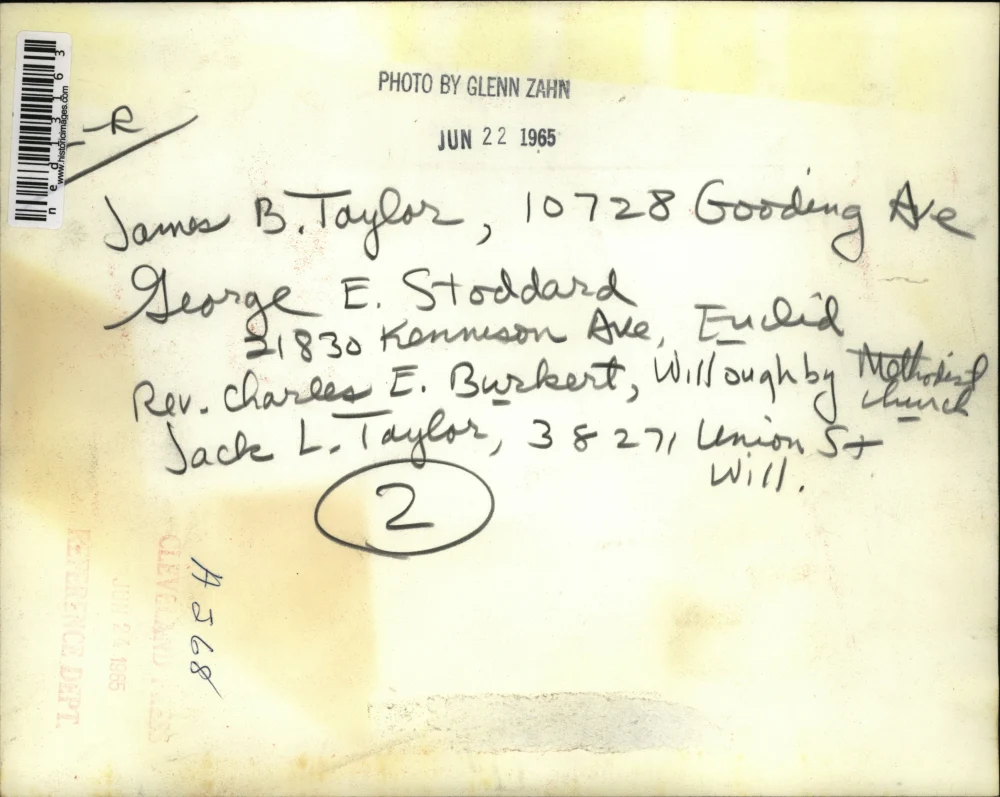 PHOTO BY GLENN ZAHN
JUN 22 1965
R
James B. Taylor, 10728 Gooding Ave
George E. Stoddard
21830 Kennison Ave, Euclid
Rev. Charles E. Burkert, Willoughby Methodist
Church
Jack L. Taylor, 38271 Union St
Will.
2
A J68
CLEVELAND PRESS
JUN 24 1965
REFERENCE DEPT.
ned13163
www.historicimages.com